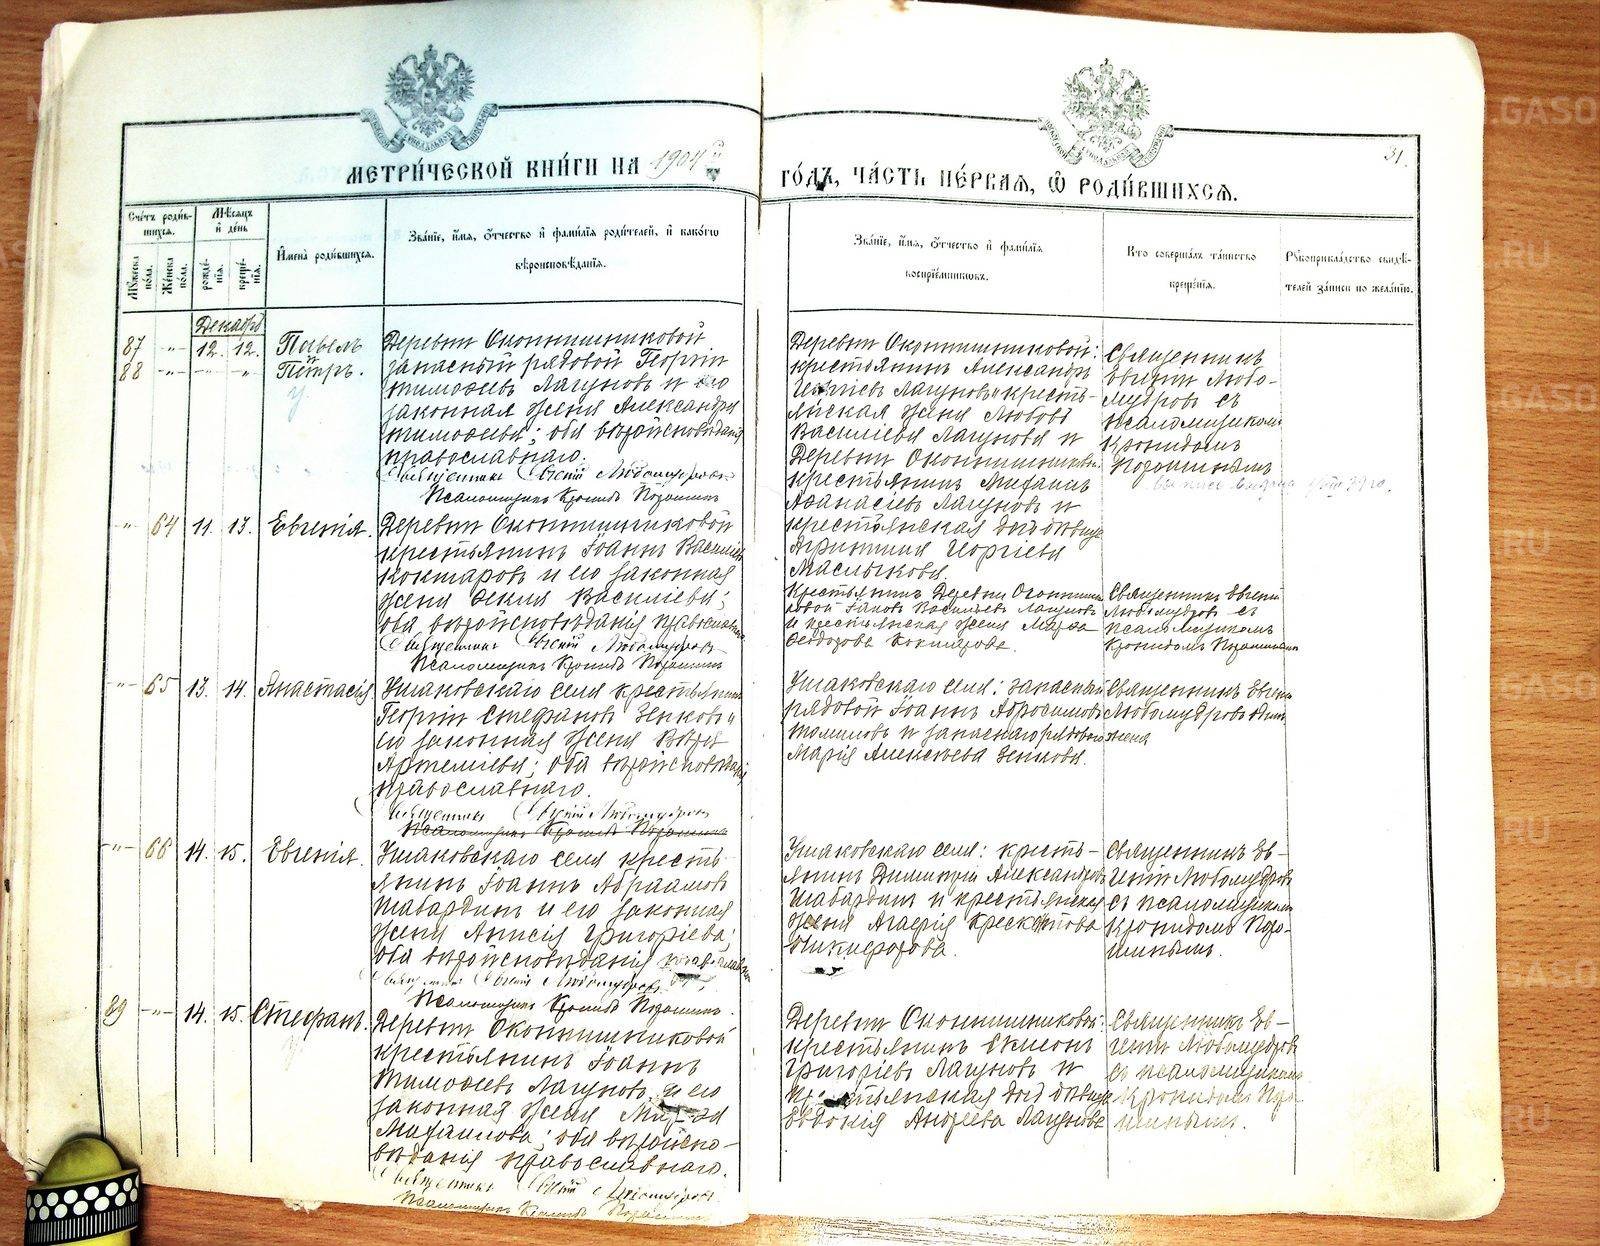 МЕТРИ́ЧЕСКОЙ КНИ́ГИ НА 1904 й
ГО́ДЪ, ЧА́СТЬ ПЕ́РВАЯ, Ѡ РОДИ́ВШИХСЯ.
31.
Сче́тъ роди́в-
шихся.
Мѣ́сяцъ
и де́нь
Му́жеска по́ла.
Же́нска по́ла.
рожде́-
нія.
креще́-
нія.
Имена̀ роди́вшихся.
Зва́ніе, и́мя, о́тчество и фами́лія роди́телей, и како́гѡ
вѣроисповѣ́данія.
Зва́ніе, и́мя, о́тчество и фами́лія
воспріе́мниковъ.
Кто̀ соверша́лъ та́инство
креще́нія.
Рукоприкла́дство свидѣ́-
телей за́писи по жела́нію.
Декабрь
87 -"- 12. 12. Павелъ
88 -"- -"- -"- Петръ.
Деревни Оконишниковой
запасный рядовой Георгій
Тимоѳеевъ Лагуновъ и его
законная жена Александра
Тимоѳеева; оба вѣроисповѣданія
православнаго.
Священникъ Евгеній Любомудровъ
Псаломщикъ Кронидъ Порошинъ
Деревни Оконишниковой:
крестьянинъ Александръ
Лагуновъ и кресть-
янская жена Любовь
Васильева Лагунова и
Деревни Оконишниковой
крестьянинъ Михаилъ
Аѳанасіевъ Лагуновъ и
крестьянская дочь дѣвица
Агриппина Георгіева
Маслыкова.
Священникъ
Евгеній Любо-
мудровъ съ
псаломщикомъ
Кронидомъ
Порошинымъ
-"- 64 11. 13. Евгенія.
Деревни Оконишниковой
крестьянинъ Іоаннъ Василіевъ
и его законная
жена Ѳекла Василіева;
оба вѣроисповѣданія православнаго
Священникъ Евгеній Любомудровъ
Псаломщикъ Кронидъ Порошинъ
Крестьянинъ Деревни Оконишни-
ковой Іаковъ Васильевъ Лагуновъ
и крестьянская жена Марѳа
Ѳеодорова
Священникъ Евгеній
Любомудровъ съ
псаломщикомъ
Кронидомъ Порошинымъ
-"- 65 13. 14. Анастасія
Ушаковскаго села крестьянинъ
Георгій Стефановъ Зенковъ и
его законная жена Вѣра
Артеміева; оба вѣроисповѣданія
православнаго.
Священникъ Евгеній Любомудровъ
Псаломщикъ Кронидъ Порошинъ
Ушаковскаго села: запасный
рядовой Іоаннъ Абросимовъ
Томиловъ и запаснаго рядового жена
Марія Алексѣева Зенкова.
Священникъ Евгеній
Любомудровъ одинъ
-"- 66 14. 15. Евгенія.
Ушаковскаго села кресть-
янинъ Іоаннъ Абраамовъ
Шабардинъ и его законная
жена Анисія Григоріева;
оба вѣроисповѣданія православнаго
Священникъ Евгеній Любомудровъ
Псаломщикъ Кронидъ Порошинъ.
Ушаковскаго села: кресть-
янинъ Димитрій Александровъ
Шабардинъ и крестьянская
жена Агаѳія
Никифорова.
Священникъ Ев-
геній Любомудровъ
съ псаломщикомъ
Кронидомъ Поро-
шинымъ.
89 -"- 14. 15. Стефанъ.
Деревни Оконишниковой
крестьянинъ Іоаннъ
Тимоѳеевъ Лагуновъ и его
законная жена
Михаилова; оба вѣроиспо-
вѣданія православнаго.
Священникъ Евгеній Любомудровъ
Псаломщикъ Кронидъ Порошинъ
Деревни Оконишниковой:
крестьянинъ Симеонъ
Григоріевъ Лагуновъ и
крестьянская дочь дѣвица
Евдокія Андреева Лагунова
Священникъ Ев-
геній Любомудровъ
съ псаломщикомъ
Кронидомъ Поро-
шинымъ.